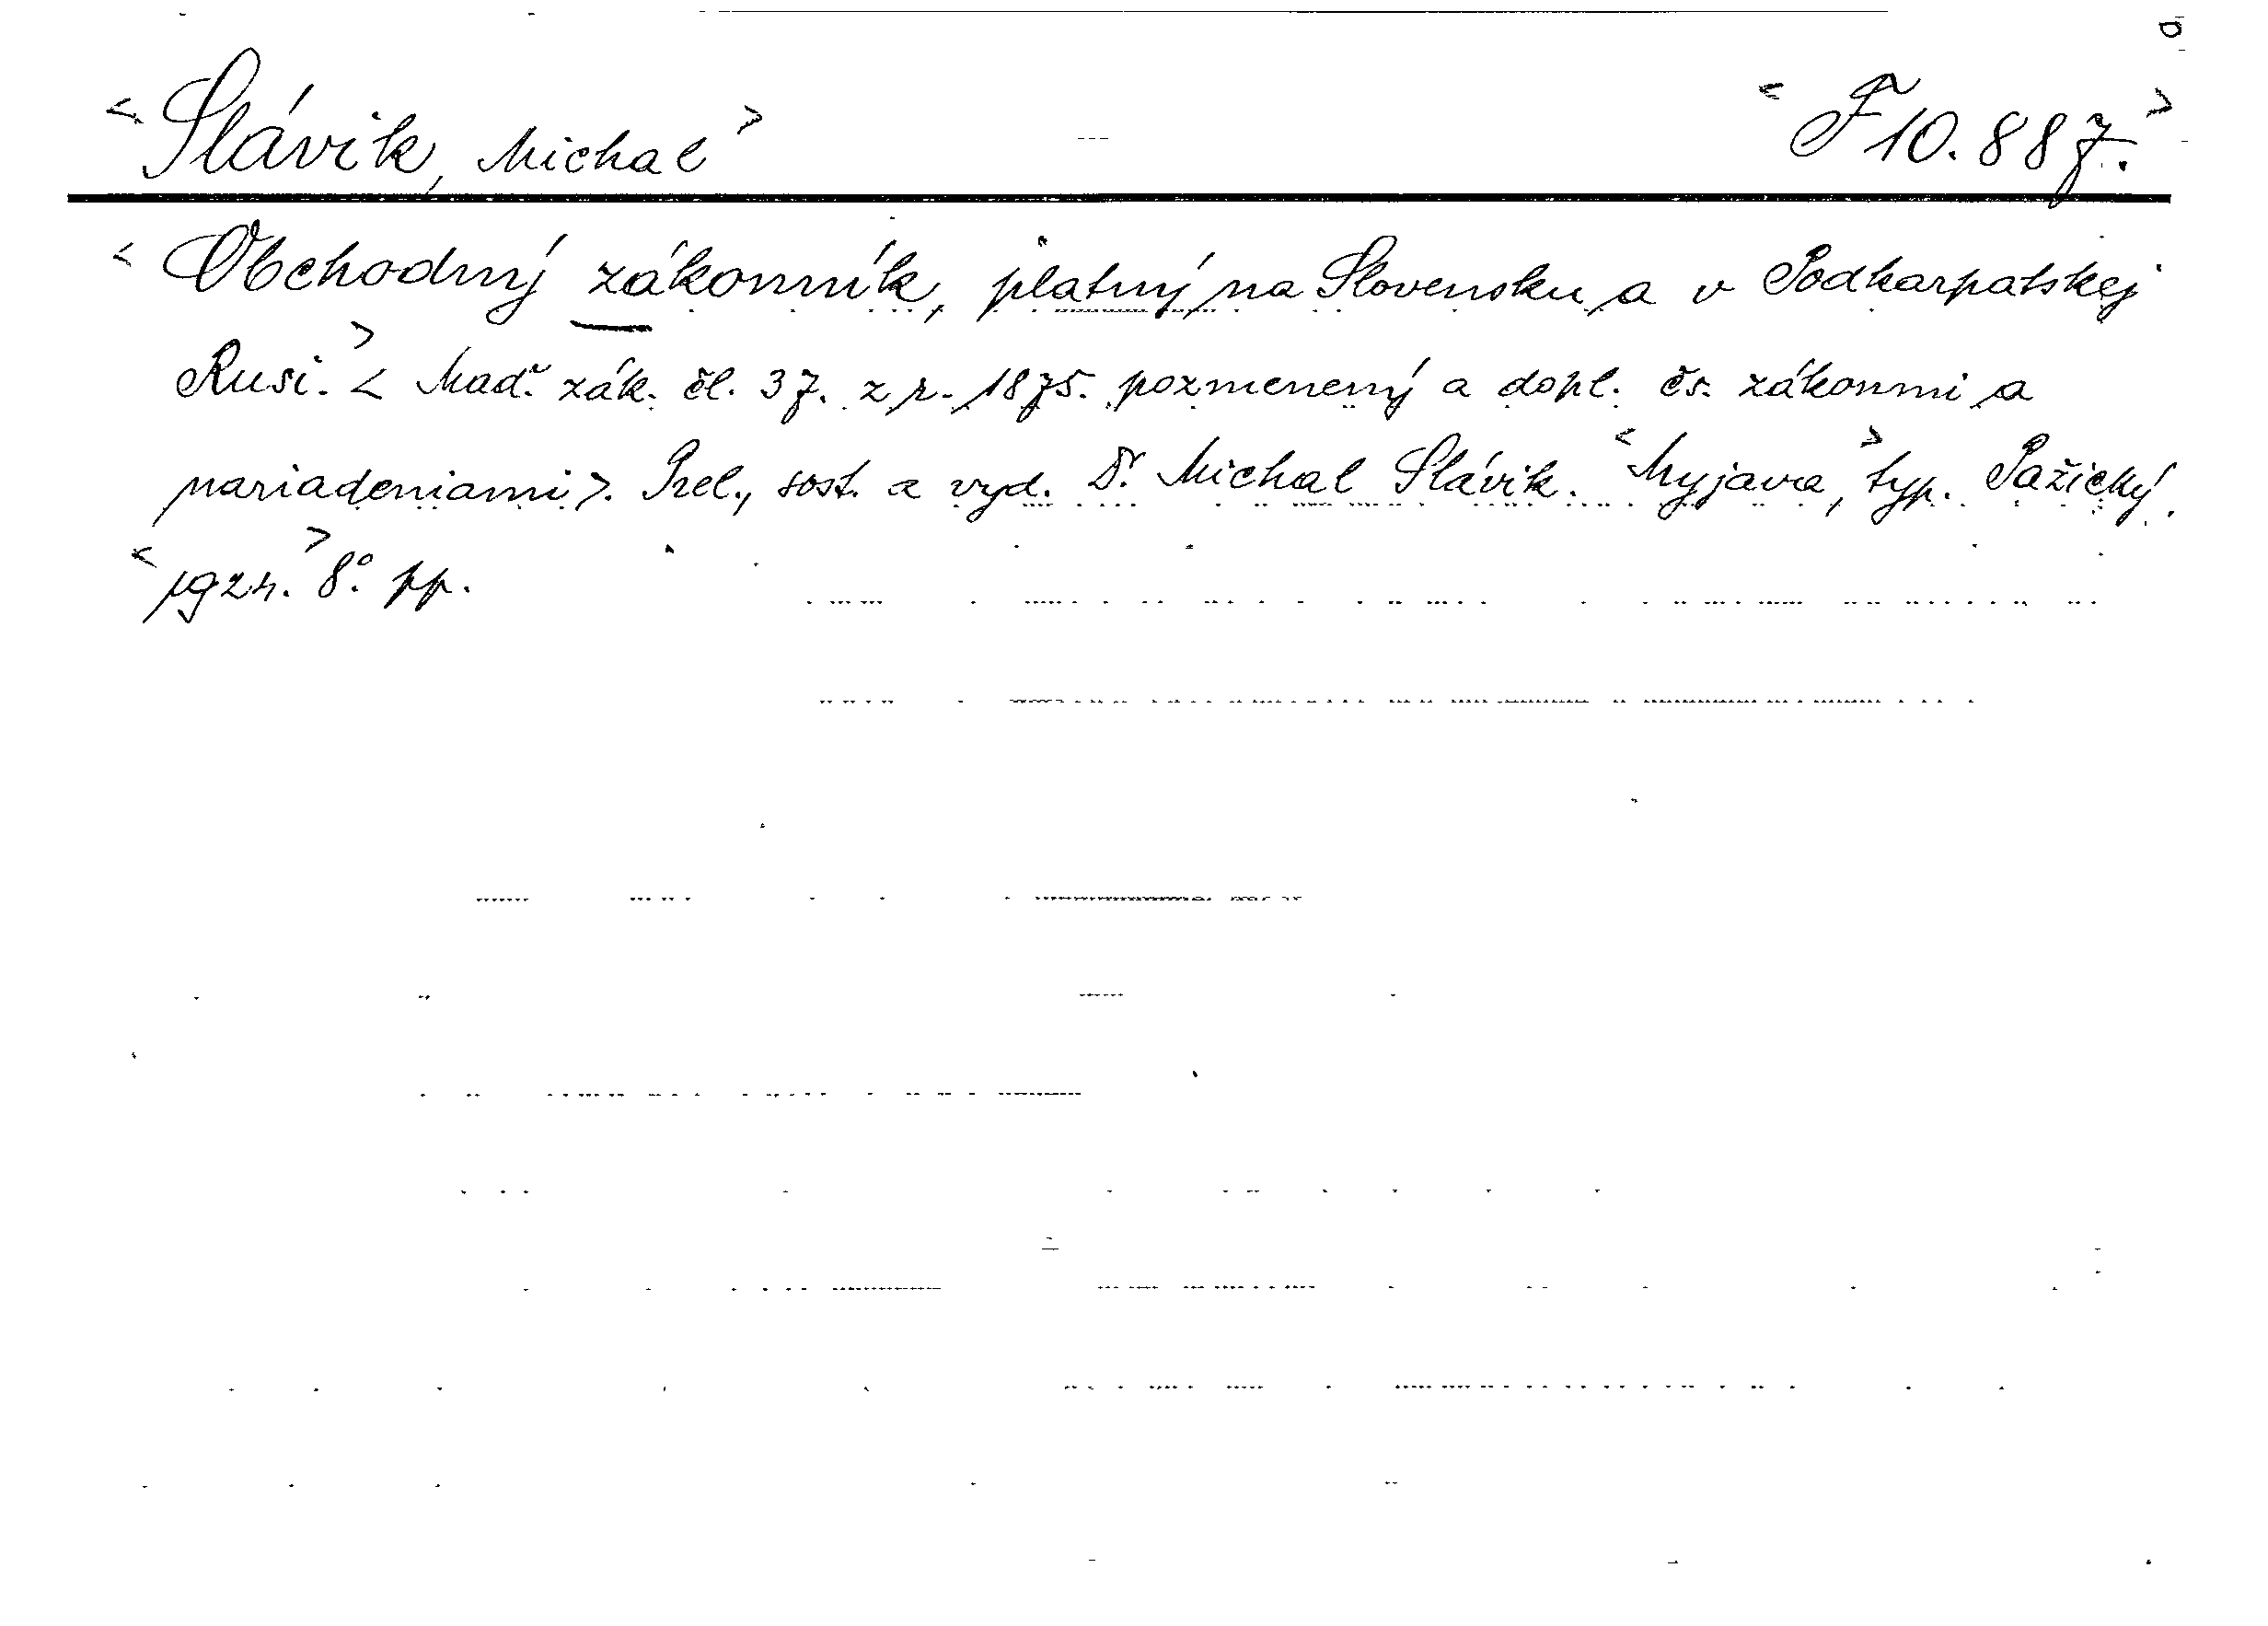 < Slávik, Michal > < F 10.887. >
< Obchodný zákonník, platný na Slovensku a v Podkarpatskej
Rusi. > < Maď. zák. čl. 37. z r. 1875. pozmenený a dopl. čs. zákonmi a
nariadeniami >. Prel., sost. a vyd. Dr. Michal Slávik. < Myjava, > typ. Pažický.
8°. pp.